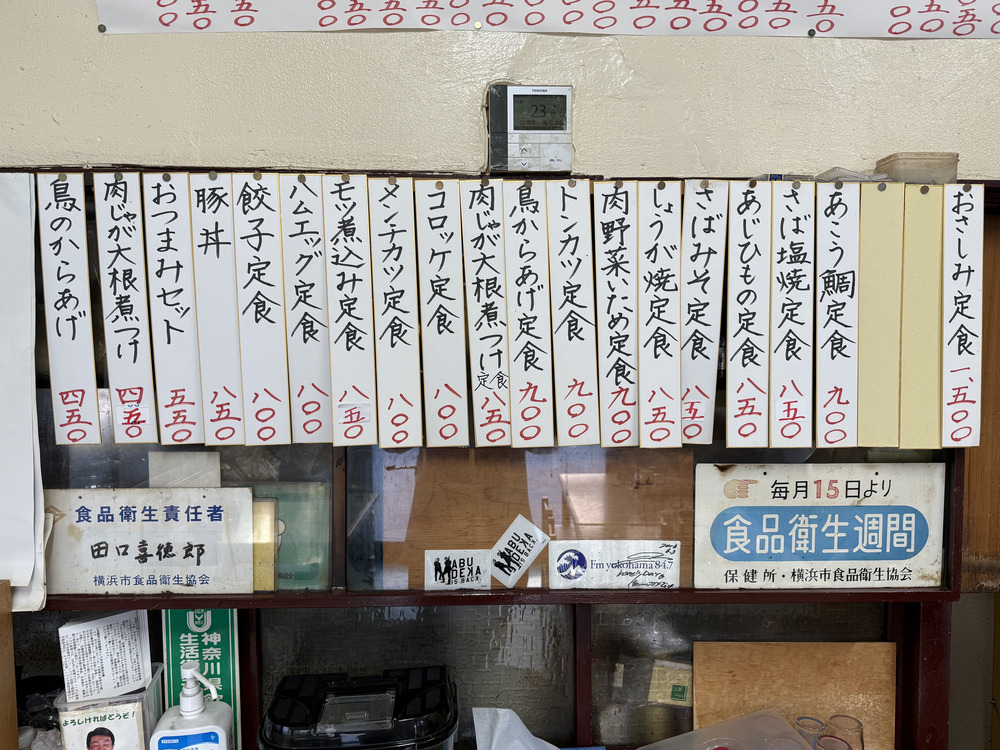 TOSHIBA
23
おさしみ定食 一、五〇〇
あこう鯛定食 九〇〇
さば塩焼定食 八五〇
あじひもの定食 八五〇
さばみそ定食 八五〇
しょうが焼定食 八五〇
肉野菜いため定食 九〇〇
トンカツ定食 九〇〇
鳥からあげ定食 九〇〇
肉じゃが大根煮つけ定食 八五〇
コロッケ定食 八〇〇
メンチカツ定食 八〇〇
モツ煮込み定食 八五〇
ハムエッグ定食 八〇〇
餃子定食 八〇〇
豚丼 八五〇
おつまみセット 五五〇
肉じゃが大根煮つけ 四五〇
鳥のからあげ 四五〇
食品衛生責任者
田口喜徳郎
横浜市食品衛生協会
ABU
DEKA
IS BACK
ABU
DEKA
IS BACK
Fm yokohama 84.7
毎月15日より
食品衛生週間
保健所・横浜市食品衛生協会
神奈川県
生活衛
よろしければどうぞ!